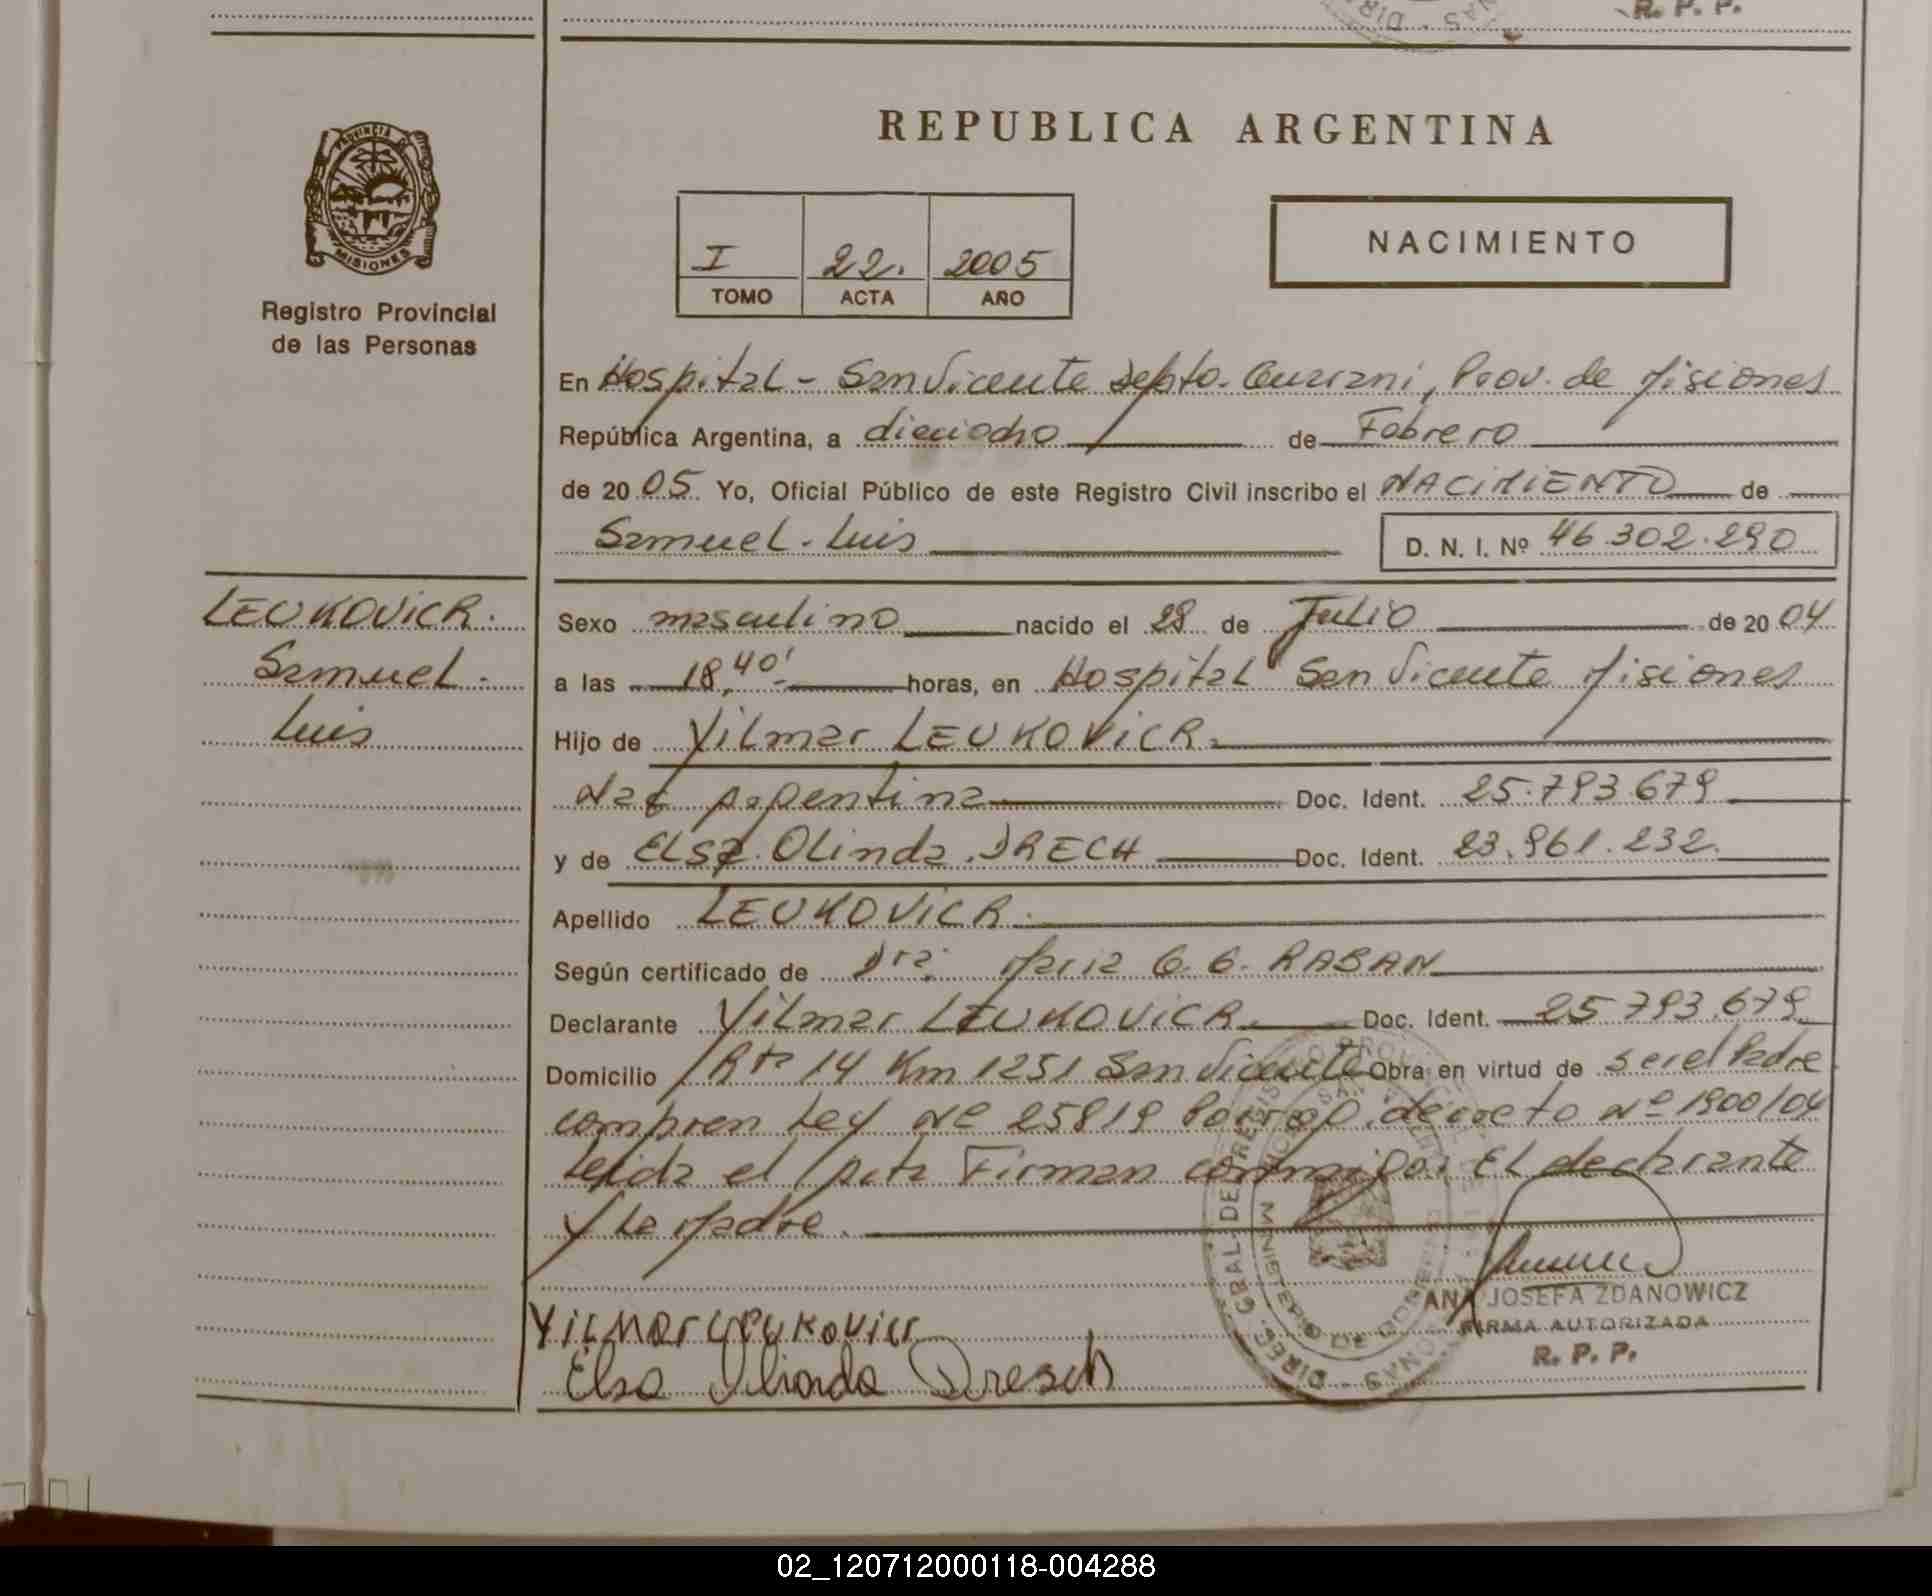 R. P. P.
REPUBLICA ARGENTINA
PROVINCIA DE
MISIONES
Registro Provincial
de las Personas
I 22. 2005
TOMO ACTA AÑO
NACIMIENTO
En Hospital - San Vicente Depto. Guarani, Prov. de Misiones
República Argentina, a dieciocho de Febrero
de 2005 Yo, Oficial Público de este Registro Civil inscribo el NACIMIENTO de
Samuel Luis D. N. I. Nº 46.302.290
LEUKOVICR.
Samuel
Luis
Sexo masculino nacido el 28 de Julio de 2004
a las 18,40' horas, en Hospital San Vicente Misiones
Hijo de Yilmar LEUKOVICR
Nac argentina Doc. Ident. 25.793.679
y de Elsa Olinda DRECH Doc. Ident. 23.961.232.
Apellido LEUKOVICR
Según certificado de Dra. Maria G. G. RABAN
Declarante Yilmar LEUKOVICR Doc. Ident. 25.793.679
Domicilio Rta 14 Km 1251 San Vicente Obra en virtud de ser el Padre
compren Ley Nº 25819 Porrog. decreto Nº 1900/04
Leida el Acta Firman conmigo; El declarante
y La Madre.
YiLMAR LEUKOVICR
Elsa Olinda Dresch
ANA JOSEFA ZDANOWICZ
FIRMA AUTORIZADA
R. P. P.
02_120712000118-004288